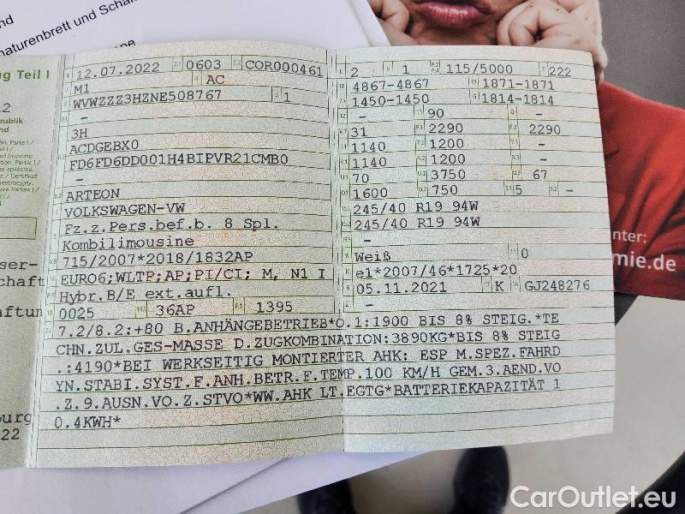 naturenbrett und Schal
ug Teil I
12.07.2022 0603 COR000461
M1 AC
WVWZZZ3HZNE508767 1
-
3H
ACDGEBX0
FD6FD6DD001H4BIPVR21CMB0
-
ARTEON
VOLKSWAGEN-VW
Fz.z.Pers.bef.b. 8 Spl.
Kombilimousine
715/2007*2018/1832AP
EURO6;WLTP;AP;PI/CI; M, N1 I
Hybr.B/E ext.aufl.
0025 36AP 1395
2 1 115/5000 222
4867-4867 1871-1871
1450-1450 1814-1814
- 90 -
31 2290 2290
1140 1200 -
1140 1200 -
70 3750 67
1600 750 5 -
245/40 R19 94W
245/40 R19 94W
-
Weiß 0
e1*2007/46*1725*20
05.11.2021 K GJ248276
-
7.2/8.2:+80 B.ANHÄNGEBETRIEB*O.1:1900 BIS 8% STEIG.*TE
CHN.ZUL.GES-MASSE D.ZUGKOMBINATION:3890KG*BIS 8% STEIG
.:4190*BEI WERKSEITIG MONTIERTER AHK: ESP M.SPEZ.FAHRD
YN.STABI.SYST.F.ANH.BETR.F.TEMP.100 KM/H GEM.3.AEND.VO
.Z.9.AUSN.VO.Z.STVO*WW.AHK LT.EGTG*BATTERIEKAPAZITÄT 1
0.4KWH*
nter:
mie.de
CarOutlet.eu